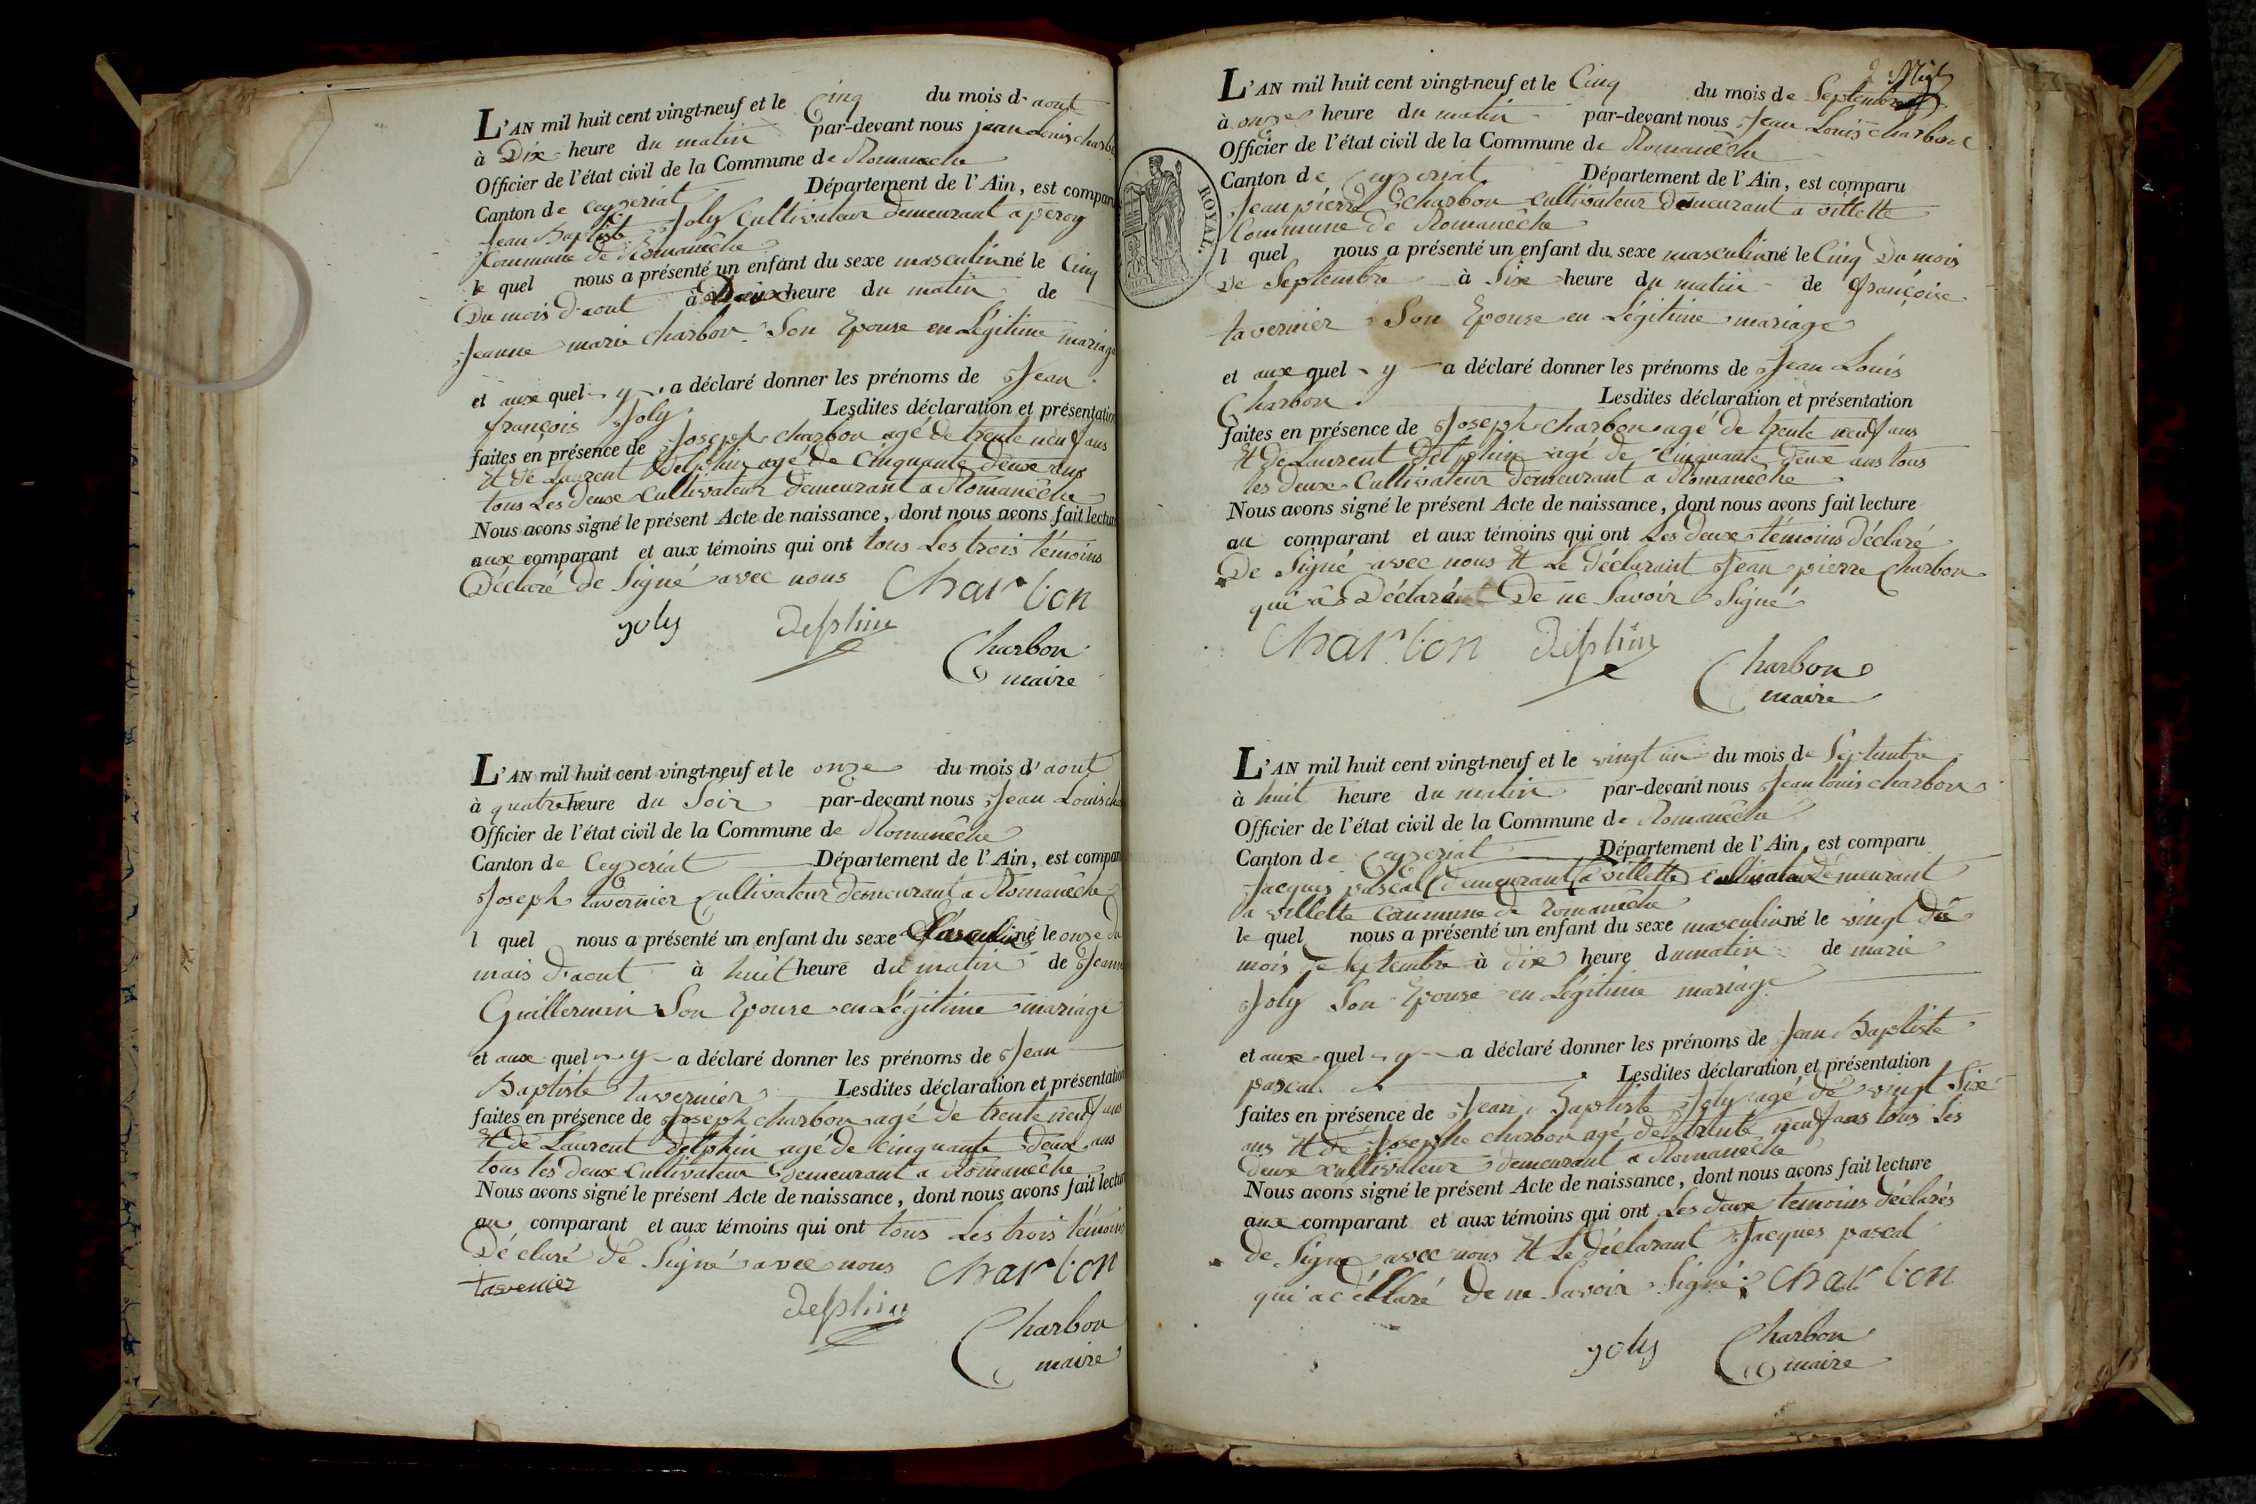 L'AN mil huit cent vingt-neuf et le Cinq du mois d'aout
à Dix heure du matin par-devant nous jean Louis charbo
Officier de l'état civil de la Commune de Romanêche
Canton de Ceyzeriat Département de l'Ain, est comparu
Jean Baptiste Joly Cultivateur demeurant a peroy
Commune de Romanêche
le quel nous a présenté un enfant du sexe masculin né le Cinq
Du mois d'aout à heure du matin de
Jeanne marie charbon Son Epouse en Légitime mariage
et aux quel y a déclaré donner les prénoms de Jean
françois Joly. Lesdites déclaration et présentation
faites en présence de Joseph charbon agé de trente neuf ans
Et de Laurent Delphin agé de Cinquante deux ans
tous Les deux Cultivateur demeurant a Romanêche
Nous avons signé le présent Acte de naissance, dont nous avons fait lecture
aux comparant et aux témoins qui ont tous Les trois témoins
Déclaré de Signé avec nous charbon
joly delphin
Charbon
maire
L'AN mil huit cent vingt-neuf et le onze du mois d'aout
à quatre heure du Soir par-devant nous Jean Louis cha
Officier de l'état civil de la Commune de Romanêche
Canton de Ceyzeriat Département de l'Ain, est compar
Joseph tavernier Cultivateur demeurant a Romanêche
l quel nous a présenté un enfant du sexe Masculin né le onze du
mois d'aout à huit heure du matin de Jeanne
Guillermin Son Epouse en Légitime mariage
et aux quel y a déclaré donner les prénoms de Jean
Baptiste tavernier Lesdites déclaration et présentation
faites en présence de Joseph charbon agé de trente neuf ans
Et de Laurent delphin agé de Cinquante deux ans
tous les deux Cultivateur demeurant a Romanêche
Nous avons signé le présent Acte de naissance, dont nous avons fait lecture
au comparant et aux témoins qui ont tous Les trois témoins
Déclaré de Signé avec nous charbon
tavernier
delphin
Charbon
maire
L'AN mil huit cent vingt-neuf et le Cinq du mois de Septembre
à onze heure du matin par-devant nous Jean Louis charbon
Officier de l'état civil de la Commune de Romanêche
Canton de Ceyzeriat Département de l'Ain, est comparu
Jean pierre charbon Cultivateur demeurant a villette
Commune de Romanêche
l quel nous a présenté un enfant du sexe masculin né le Cinq Du mois
De Septembre à Six heure du matin de françoise
tavernier Son Epouse en Légitime mariage
et aux quel y a déclaré donner les prénoms de Jean Louis
Charbon. Lesdites déclaration et présentation
faites en présence de Joseph charbon agé de trente neuf ans
Et de Laurent Delphin agé de Cinquante deux ans tous
les deux Cultivateur demeurant a Romanêche
Nous avons signé le présent Acte de naissance, dont nous avons fait lecture
au comparant et aux témoins qui ont Les deux témoins déclaré
De Signé avec nous Et Le déclarant Jean pierre Charbon
qui a Déclaré De ne Savoir Signé
charbon delphin
Charbon
maire
ROYAL.
L'AN mil huit cent vingt-neuf et le vingt un du mois de Septembre
à huit heure du matin par-devant nous Jean Louis charbon
Officier de l'état civil de la Commune de Romanêche
Canton de Ceyzeriat Département de l'Ain, est comparu
Jacques pascal (demeurant a villette) Cultivateur Demeurant
a villette Commune de Romanêche
le quel nous a présenté un enfant du sexe masculin né le vingt du
mois de Septembre à dix heure du matin de marie
Joly Son Epouse en Légitime mariage
et aux quel y a déclaré donner les prénoms de Jean Baptiste
pascal Lesdites déclaration et présentation
faites en présence de Jean Baptiste Joly agé de vingt Six
ans Et de Josephe charbon agé de trente neuf ans tous Les
deux Cultivateur demeurant a Romanêche
Nous avons signé le présent Acte de naissance, dont nous avons fait lecture
aux comparant et aux témoins qui ont Les deux temoins déclarés
de Signe avec nous Et Le déclarant Jacques pascal
qui a déclaré de ne Savoir Signé; charbon
joly Charbon
maire